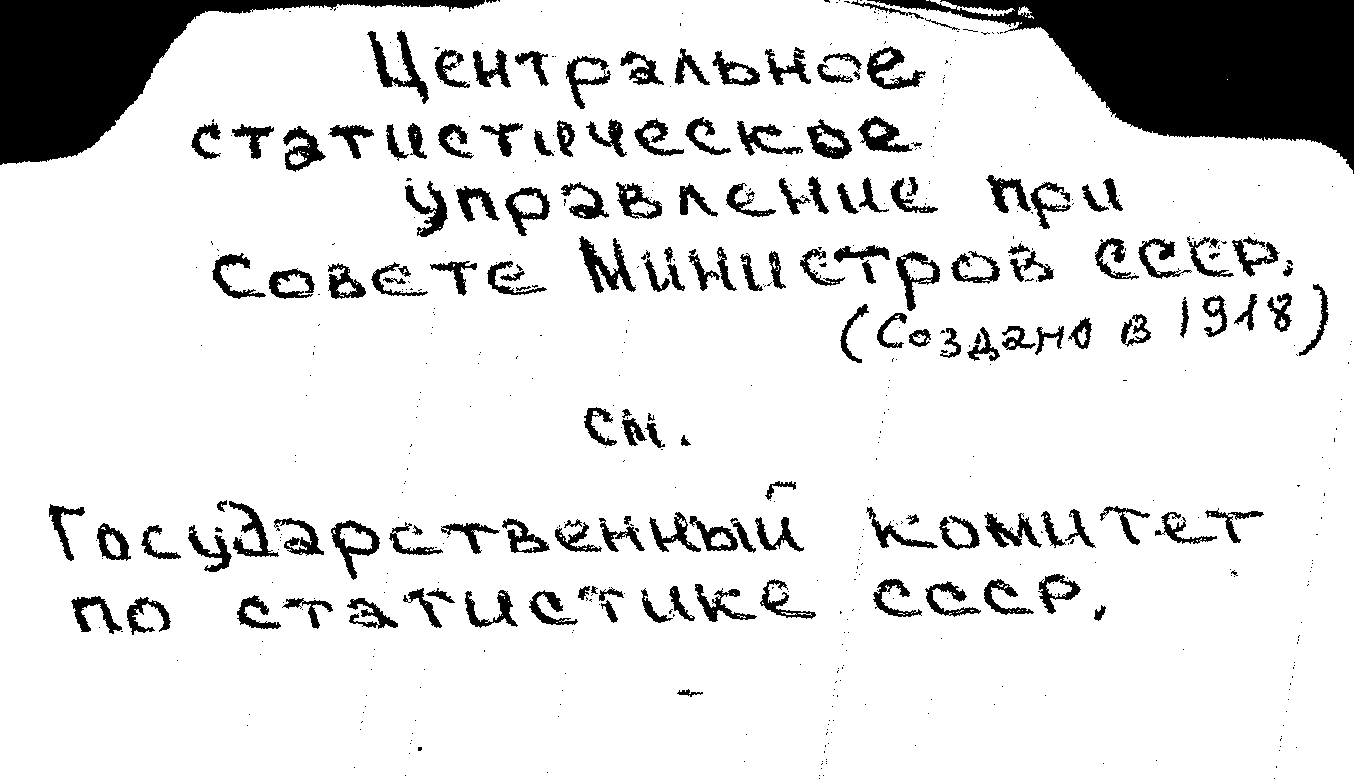 Центральное
статистическое
управление при
Совете Министров СССР.
(Создано в 1918)
см.
Государственный комитет
по статистике СССР.